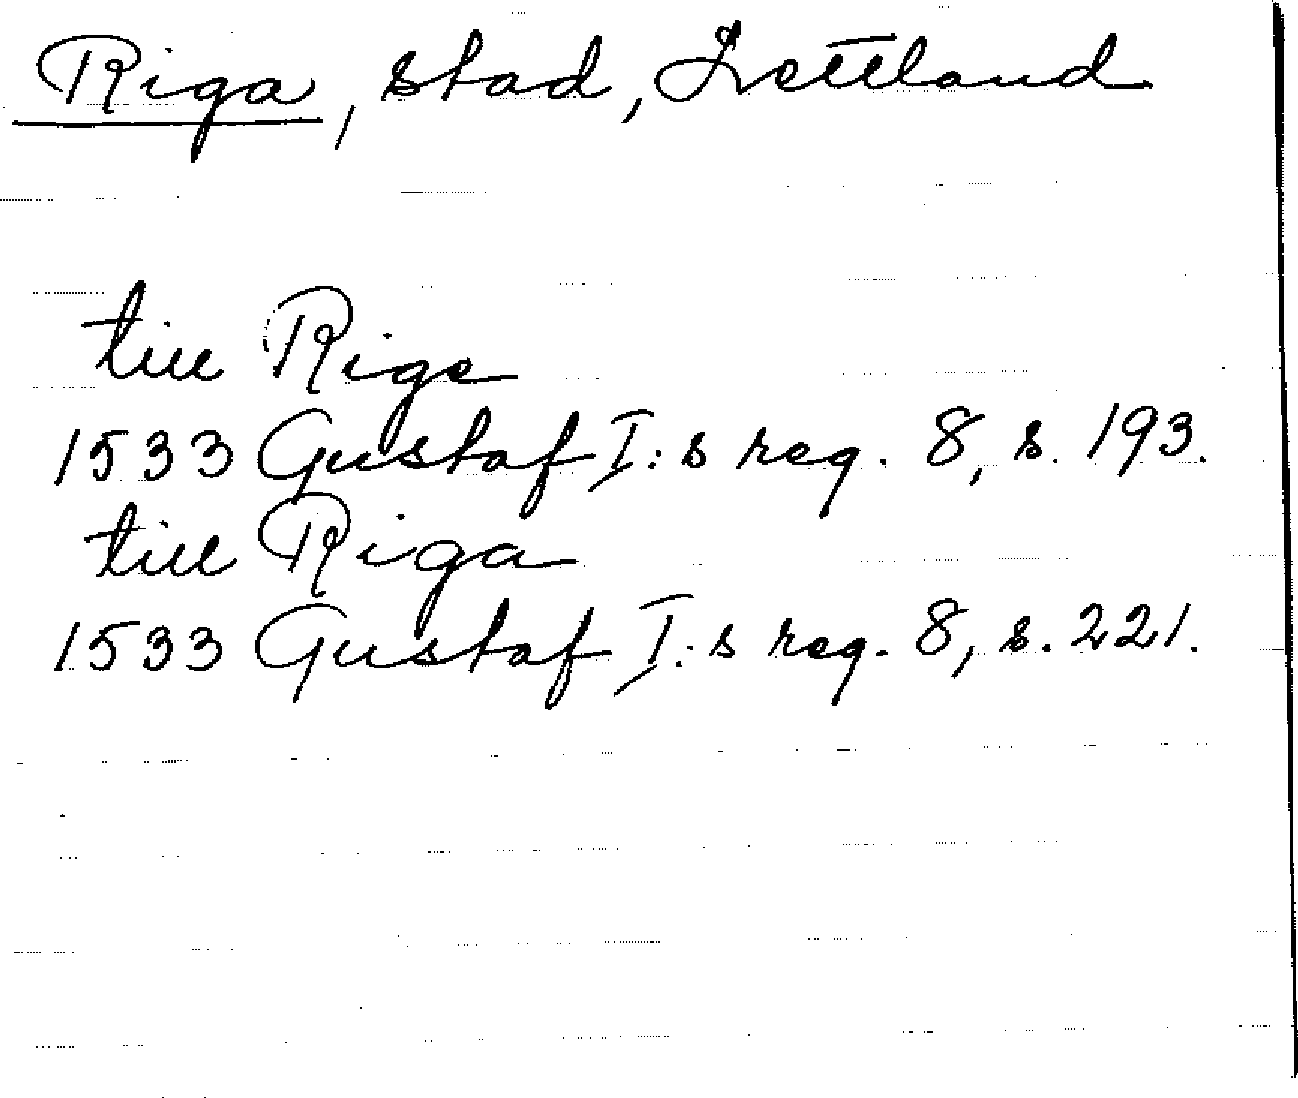 Riga, stad, Lettland
till Rige
1533 Gustaf I:s reg. 8, s. 193.
till Riga
1533 Gustaf I:s reg. 8, s. 221.